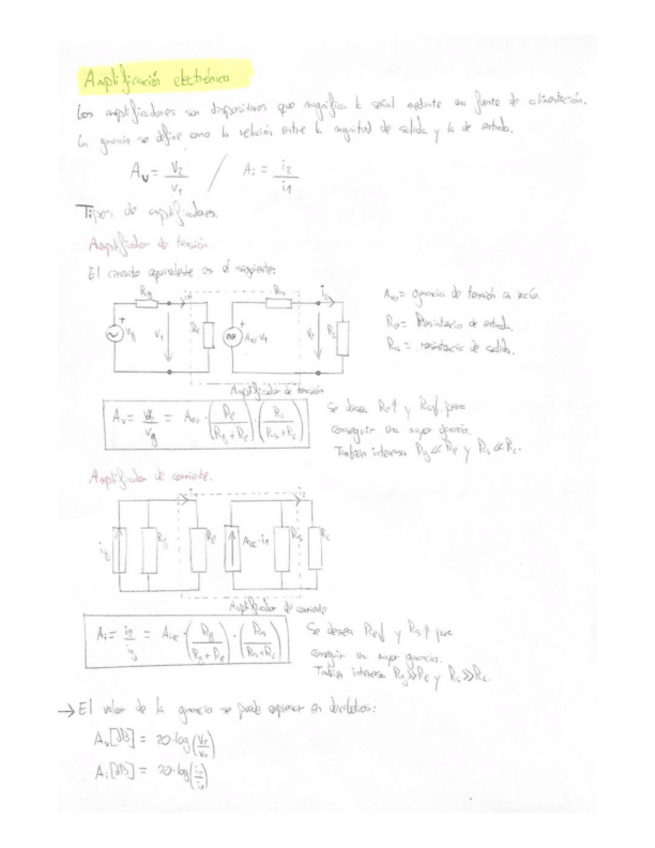 Amplificación electrónica
Los amplificadores son dispositivos que magnifican la señal mediante una fuente de alimentación.
La ganancia se define como la relación entre la magnitud de salida y la de entrada.
Av = v2/v1 / Ai = i2/i1
Tipos de amplificadores.
Amplificador de tensión.
El circuito equivalente es el siguiente:
Rg Rs
vg v1 Re Avo·v1 Rc
Avo = ganancia de tensión en vacío.
Re = Resistencia de entrada.
Rs = resistencia de salida.
Amplificador de tensión
Av = v2/vg = Avo·(Re/(Rg+Re))·(Rc/(Rs+Rc))
Se desea Re↑ y Rs↓ para
conseguir una mayor ganancia.
También interesa Rg≪Re y Rs≪Rc.
Amplificador de corriente.
i1 i2
ig Rg Re Aicc·i1 Rs Rc
Amplificador de corriente
Ai = i2/ig = ·(Rg/(Rg+Re))·(Rs/(Rs+Rc))
Se desea Re↓ y Rs↑ para
conseguir una mayor ganancia.
También interesa Rg≫Re y Rs≫Rc.
→ El valor de la ganancia se puede expresar en decibelios:
Av[dB] = 20·log(v2/v1)
Ai[dB] = 20·log(i2/i1)